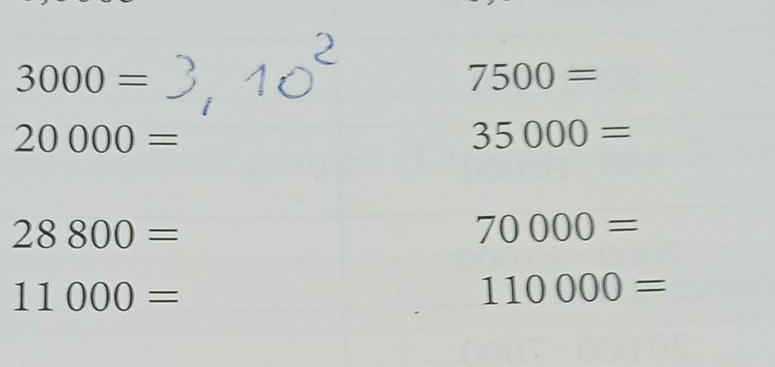 3000 = 3, 10²
7500 =
20 000 =
35 000 =
28 800 =
70 000 =
11 000 =
110 000 =